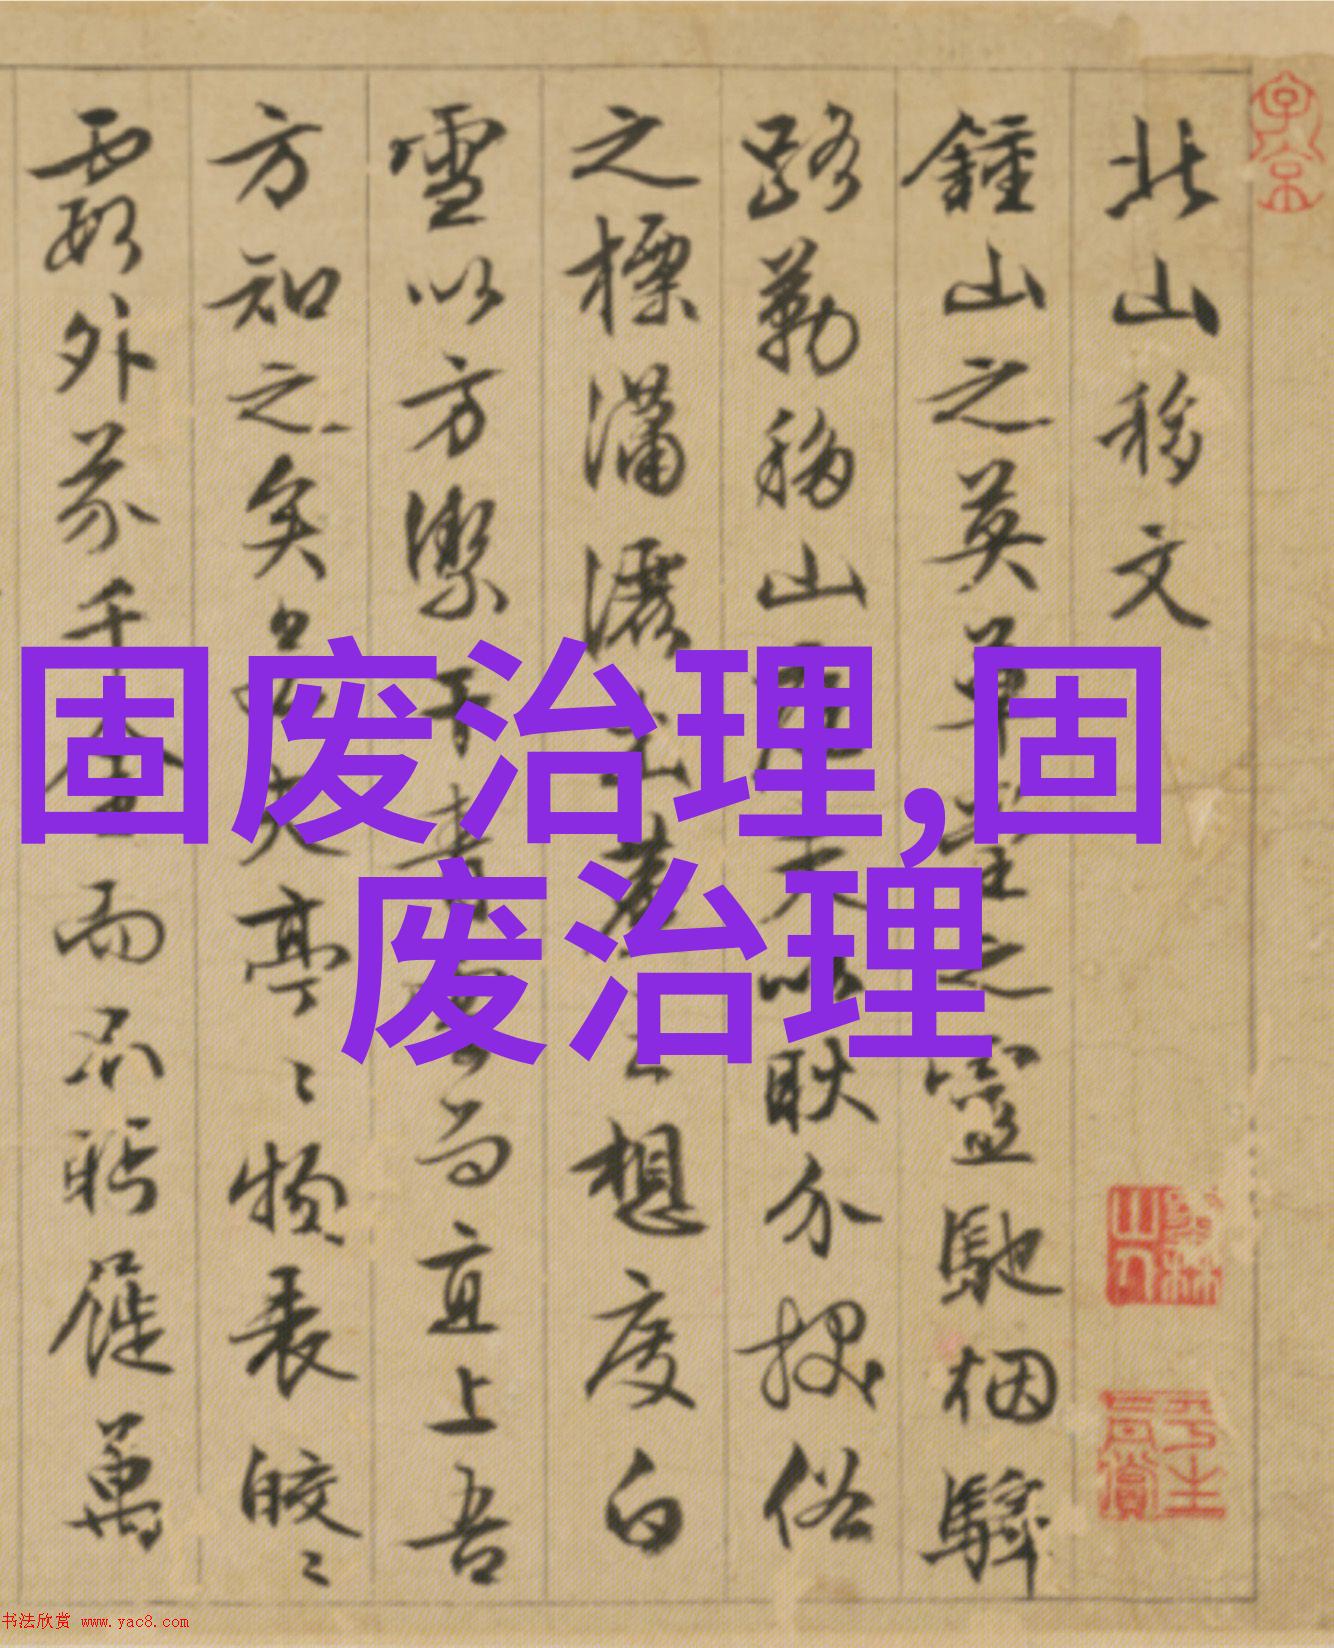 北山移文
鍾山之英草堂之靈馳烟驛
路勒移山庭夫以耿介拔俗
之標瀟灑出塵之想度白
雪以方潔干青雲而直上吾
方知之矣若其亭亭物表皎皎
霞外芥千金而不眄屣萬
固废治理,固
废治理
书法欣赏 www.yac8.com